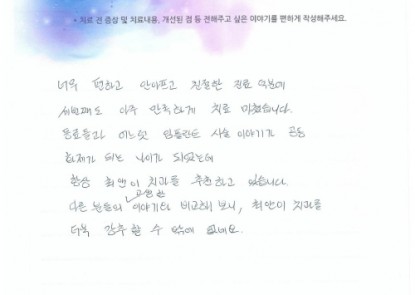 * 치료 전 증상 및 치료내용, 개선된 점 등 전해주고 싶은 이야기를 편하게 작성해주세요.
너무 편하고 안아프고 친절한 진료 덕분에
세번째도 아주 만족하게 치료 마쳤습니다.
동료들과 어느덧 임플란트 시술 이야기가 공통
화제가 되는 나이가 되었는데
항상 최앤이 치과를 추천하고 있습니다.
고민한
다른 분들의 이야기와 비교해 보니, 최앤이 치과를
더욱 강추할 수 밖에 없네요.